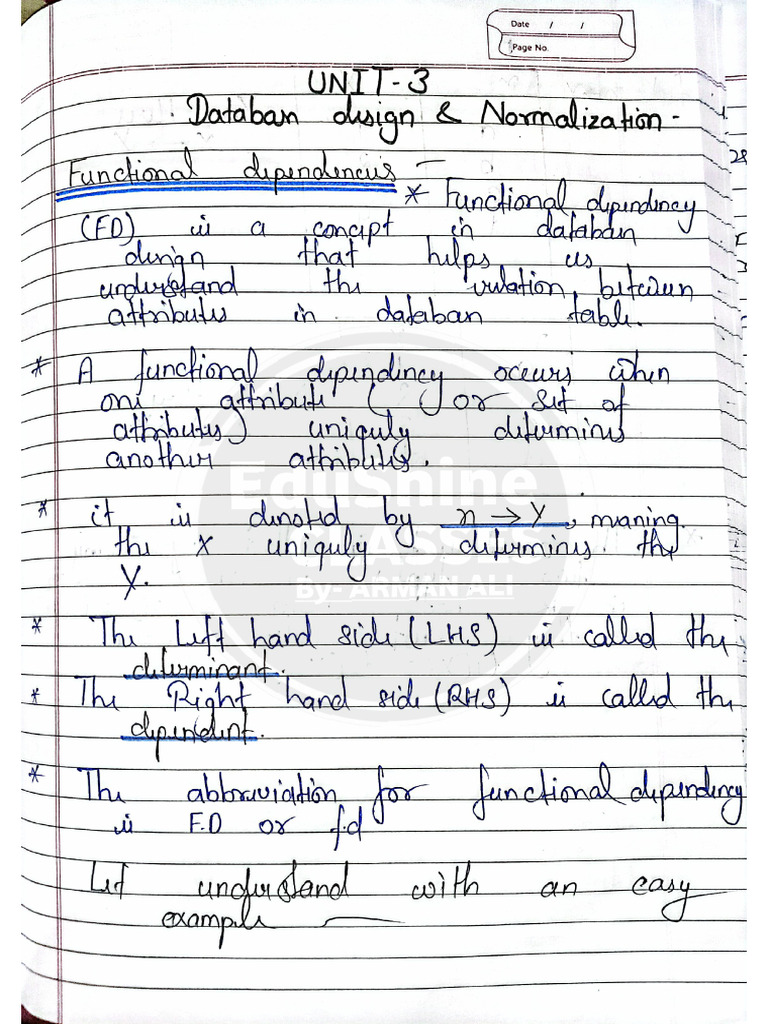 Date / /
Page No.
UNIT-3
Database design & Normalization -
Functional dependencies -
* Functional dependency
(FD) is a concept in database
design that helps us
understand the relation between
attributes in database table.
* A functional dependency occurs when
one attribute ( or set of
attributes) uniquly determines
another attributes.
* it is denoted by x → Y, meaning
the x uniquly determines the
Y.
* The Left hand side (LHS) is called the
determinant.
* The Right hand side (RHS) is called the
dependent.
* The abbreviation for functional dependency
is F.D or f.d
Let understand with an easy
example
EduShine
CLASSES
By- ARMAN ALI